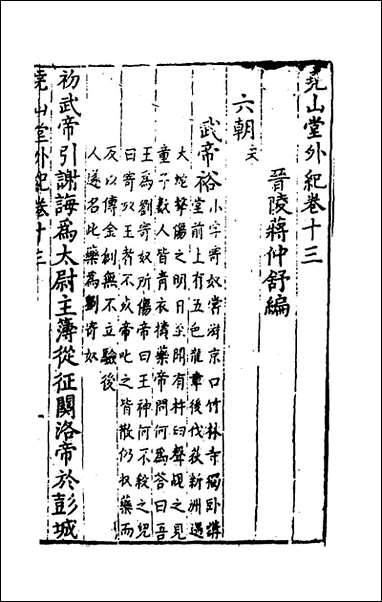 堯山堂外紀卷十三
晉陵蔣仲舒編
六朝 宋
武帝裕 小字寄奴嘗游京口竹林寺獨卧講
堂前上有五色龍章後伐荻新洲遇
大蛇擊傷之明日至聞有杵臼聲覘之見
童子數人皆青衣擣藥帝問何為答曰吾
王為劉寄奴所傷帝曰王神何不殺之兒
曰寄奴王者不死帝叱之皆散仍收藥而
反以傅金創無不立驗後
人遂名此藥為劉寄奴
初武帝引謝誨為太尉主簿從征關洛帝於彭城
堯山堂外紀卷十三